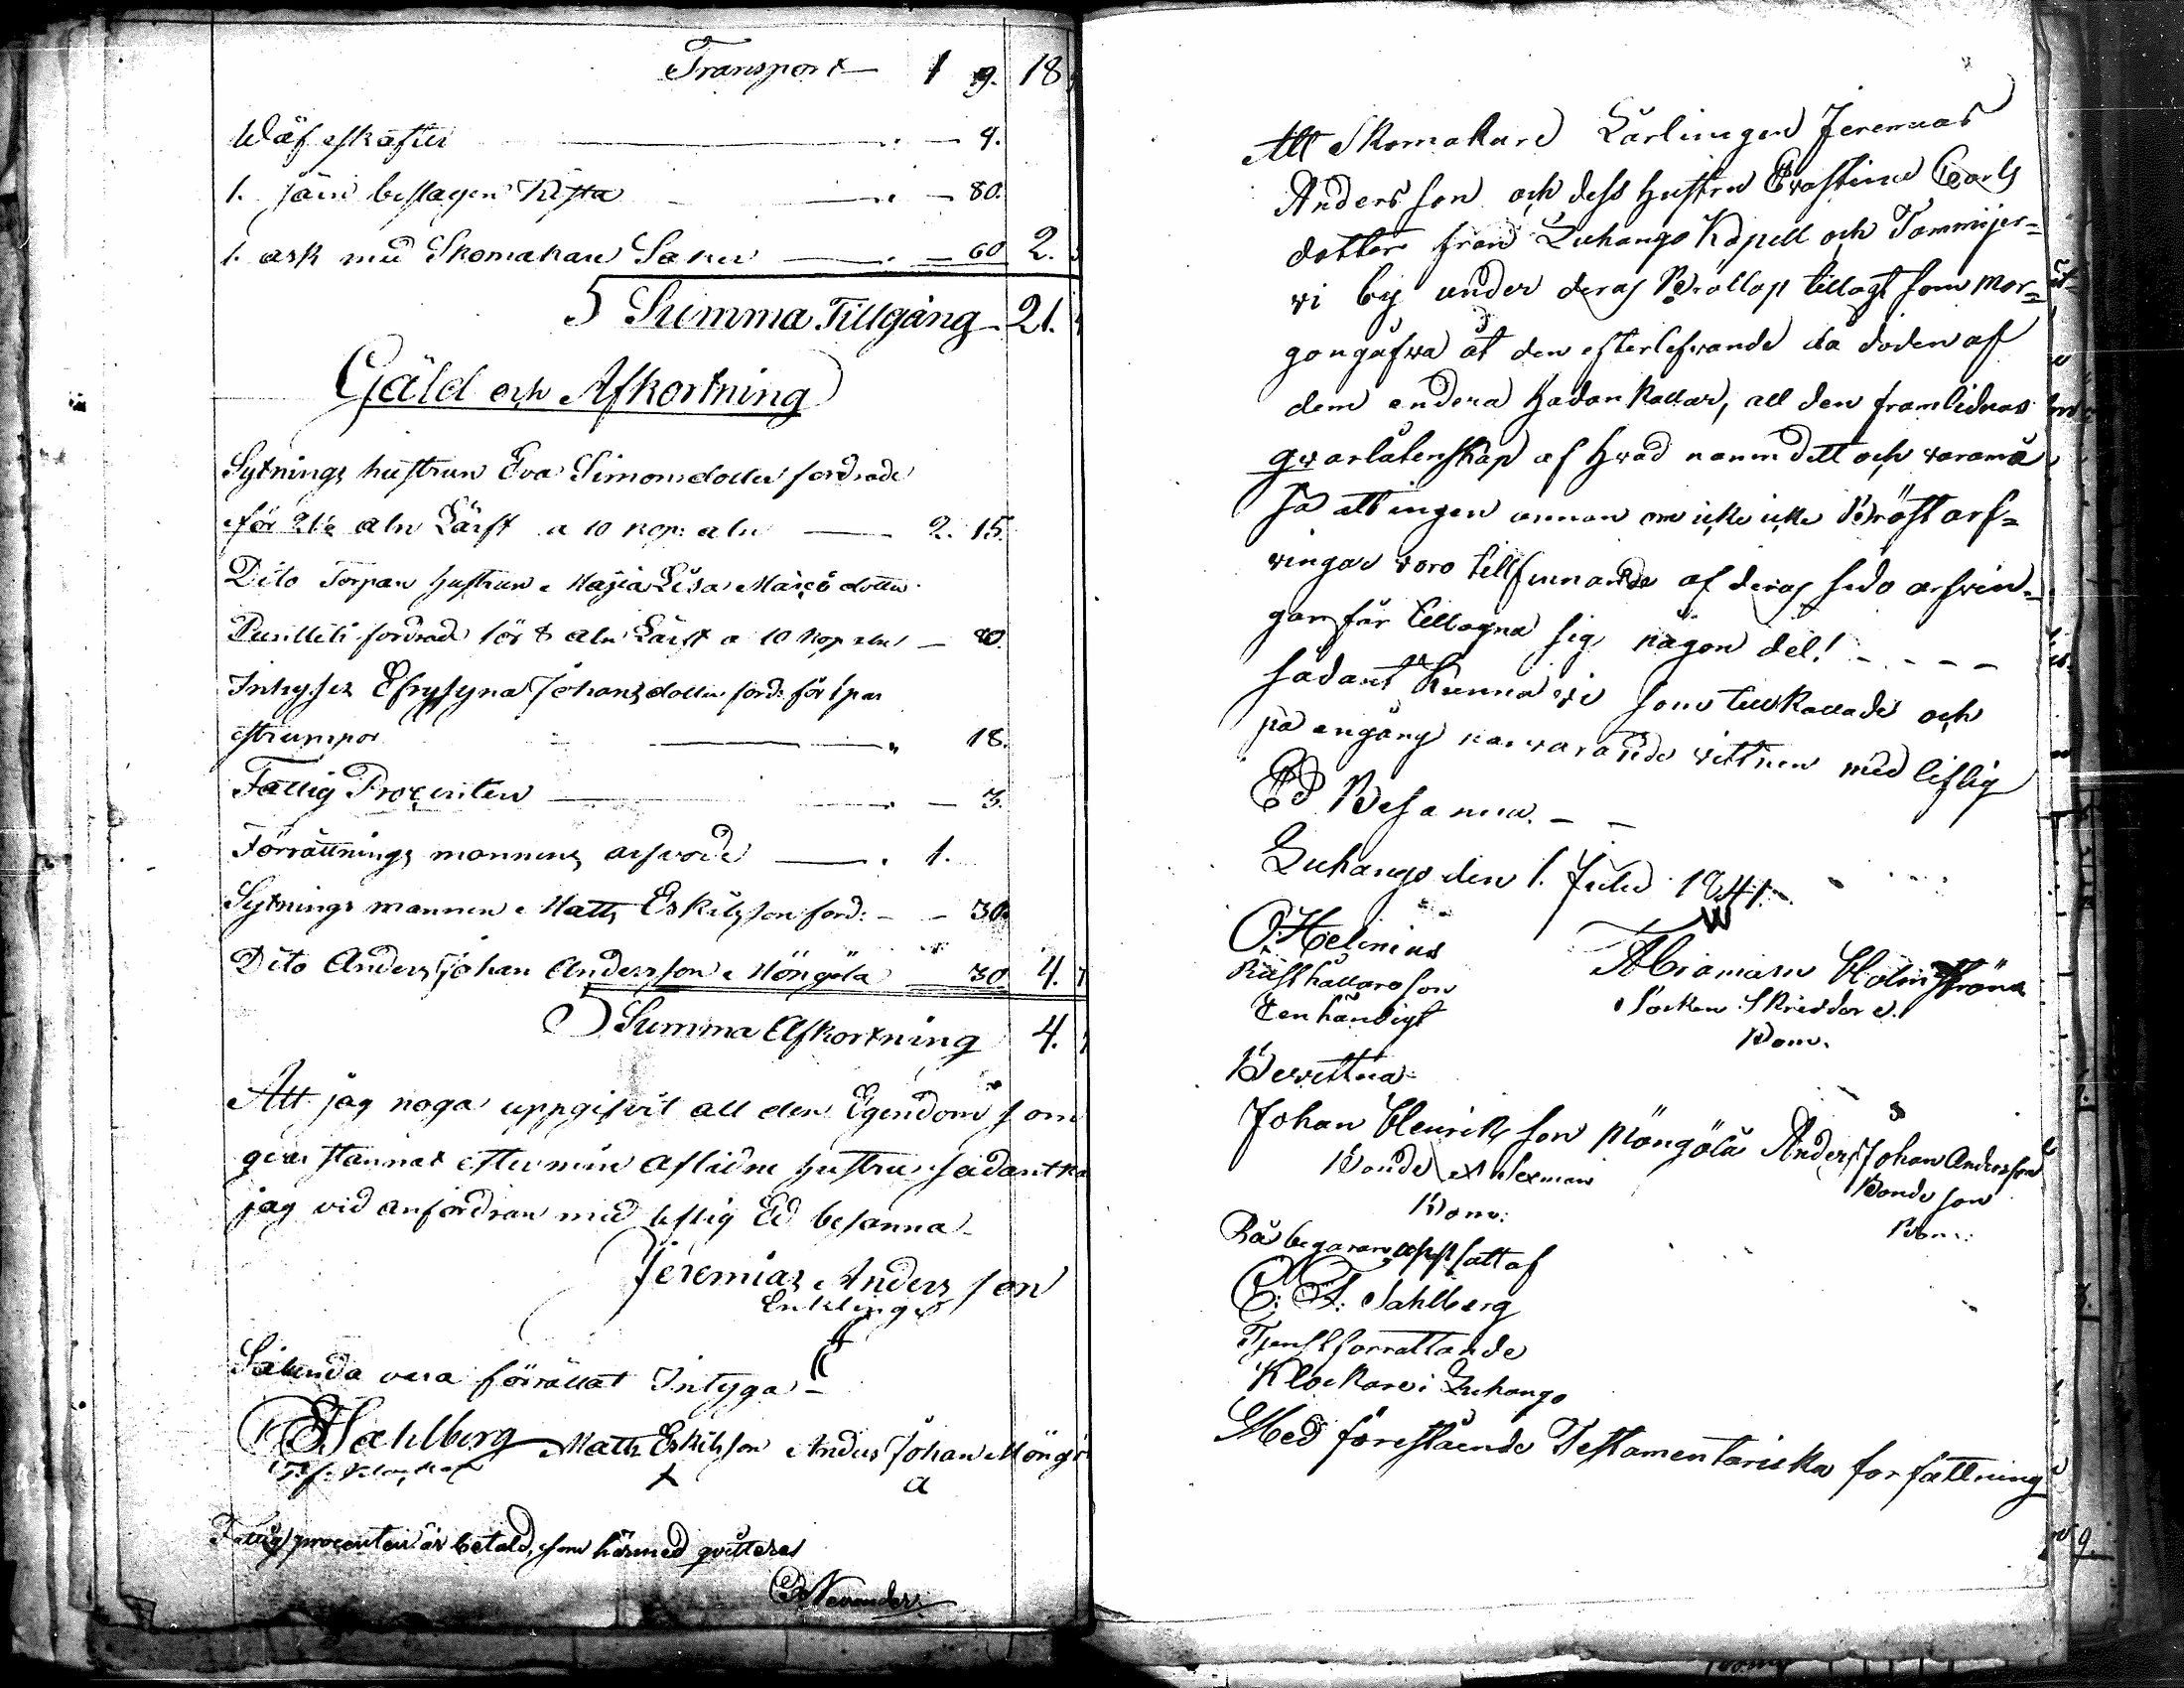 Transport 1 9. 18
Wäf skäfter 4.
1. järn beslagen Kista 80.
1. ask med Skomakare Saker 60 2.
Summa Tillgång 21.
Gäld och Afkortning
Sytnings hustrun Eva Simonsdotter fordrade
för 21½ aln Lärft a 10 kop: aln 2. 15.
Dito Torpare hustrun Maja Lisa Matsdotter
fordrade för 8 aln Lärft a 10 kop aln 80.
Inhyses Efrosyna Johansdotter ford: för 1 par
strumpor 18.
Fattig Procenten 3.
Förrättnings mannens arfvode 1.
Sytnings mannen Matts Eskilsson ford: 30.
Dito Anders Johan Andersson Möngölä 30. 4.
Summa Afkortning 4.
Att jag noga uppgifvit all den Egendom som
qvar stannat efter min aflidne hustru sådant
jag vid anfordran med liflig Ed besanna
Jeremias Andersson
Enklinge
Sålunda vara förrättat Intyga
Sahlberg Matts Eskilsson Anders Johan Möngö
Fattig procenten är betald, som härmed qvitteras
Nevander
Att Skomakare Lärlingen Jeremias
Andersson och dess hustru Carls
dotter från Luhango Kapell och Tammijer=
vi by under deras Bröllop tillagt som mor=
gongåfva åt den efterlefvande då döden af
dem endera hädan kallar, all den framlidnas
qvarlåtenskap af hvad namn dett och vara må
så att ingen annan om icke icke Bröst arf=
vingar voro tillfinnande af deras sido arfvin=
gar får tillägna sig någon del!
sådant kunna vi som tillkallade och
på engång närvarande vittnen med liflig
Ed Besanna.
Luhango den 1. Julii 1841.
Helenius
Rusthållareson
Egenhändigt
Abraham Holmström
Socken Skräddare.
Bom.
Bevittna
Johan Henriksson Möngölä Anders Johan Andersson
Bonde Sexman Bonde son
Bom: Bom:
På begäran uppsatt af
C. F. Sahlberg
Tjenstförrättande
Klockare i Luhango
Med förestående Testamentariska författning